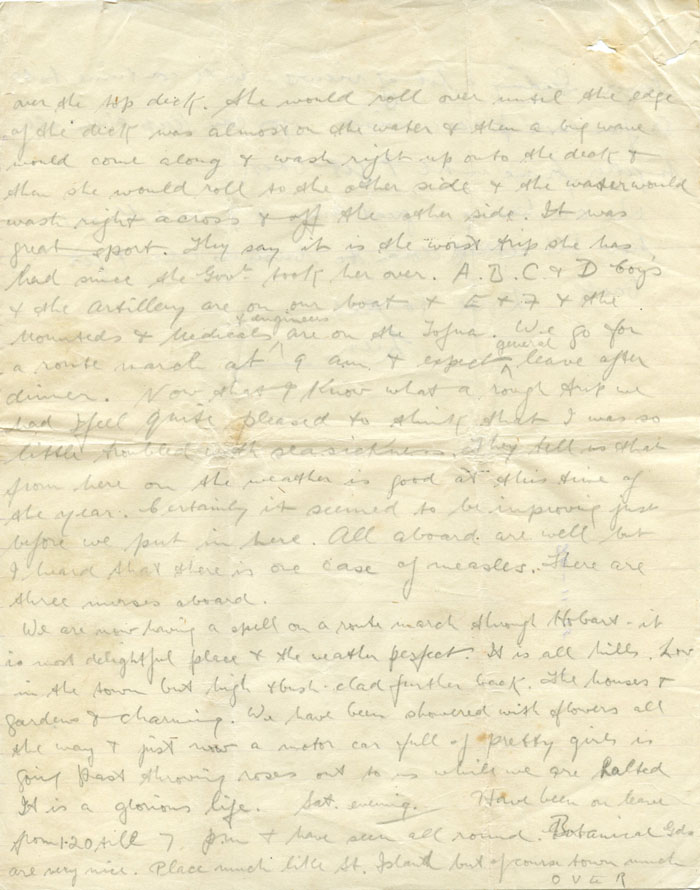 over the top deck. She would roll over until the edge
of the deck was almost on the water & then a big wave
would come along & wash right up onto the deck &
then she would roll to the other side & the water would
wash right across & off the other side. It was
great sport. They say it is the worst trip she has
had since the Govt. took her over. A.B.C & D Coy's
& the Artillery are on our boat & E & F & the
& engineers
Mounteds & Medicals are on the Tofua. We go for
general
a route march at 9 a.m. & expect leave after
dinner. Now that I know what a rough trip we
had I feel quite pleased to think that I was so
little troubled with seasickness. They tell us that
from here on the weather is good at this time of
the year. Certainly it seemed to be improving just
before we put in here. All aboard are well but
I heard that there is one case of measles. There are
three nurses aboard.
We are now having a spell on a route march through Hobart - it
is most delightful place & the weather perfect. It is all hills. Low
in the town but high & bush-clad further back. The houses &
gardens & charming. We have been showered with flowers all
the way & just now a motor car full of pretty girls is
going past throwing roses out to us while we are halted
It is a glorious life. Sat. evening. Have been on leave
from 1.20 till 7 p.m & have seen all round. Botanical Gds
are very nice. Place much like St. Island but of course town much
OVER